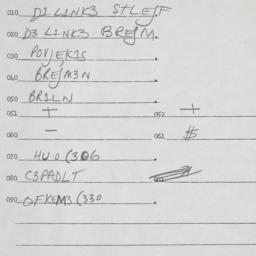 010 D2 L1NK3 STLEJF
020 D3 L1NK3 BREJM
030 POVJEK1S
040 BREJM3N
050 BR1LN
051 + 052 +
060 - 061 #
070 HU.0 (306
080 C3PADLT
090 OFKEM3 (330